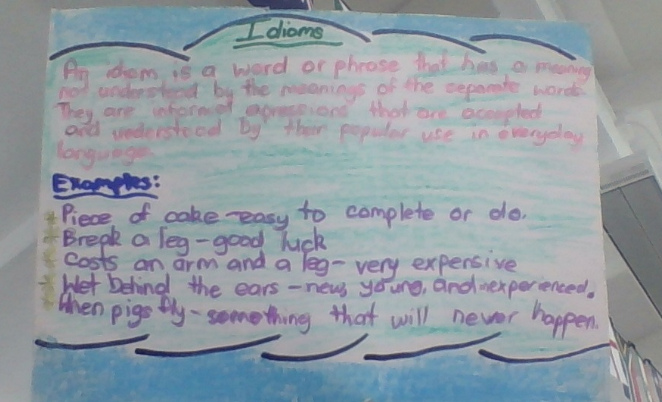 Idioms
An idiom is a word or phrase that has a meaning
not understood by the meanings of the seperate words.
They are informal expressions that are accepted
and understood by their popular use in everyday
language.
Examples:
* Piece of cake - easy to complete or do.
* Break a leg - good luck
* Costs an arm and a leg - very expensive
* Wet behind the ears - new, young, and inexperienced.
When pigs fly - something that will never happen.